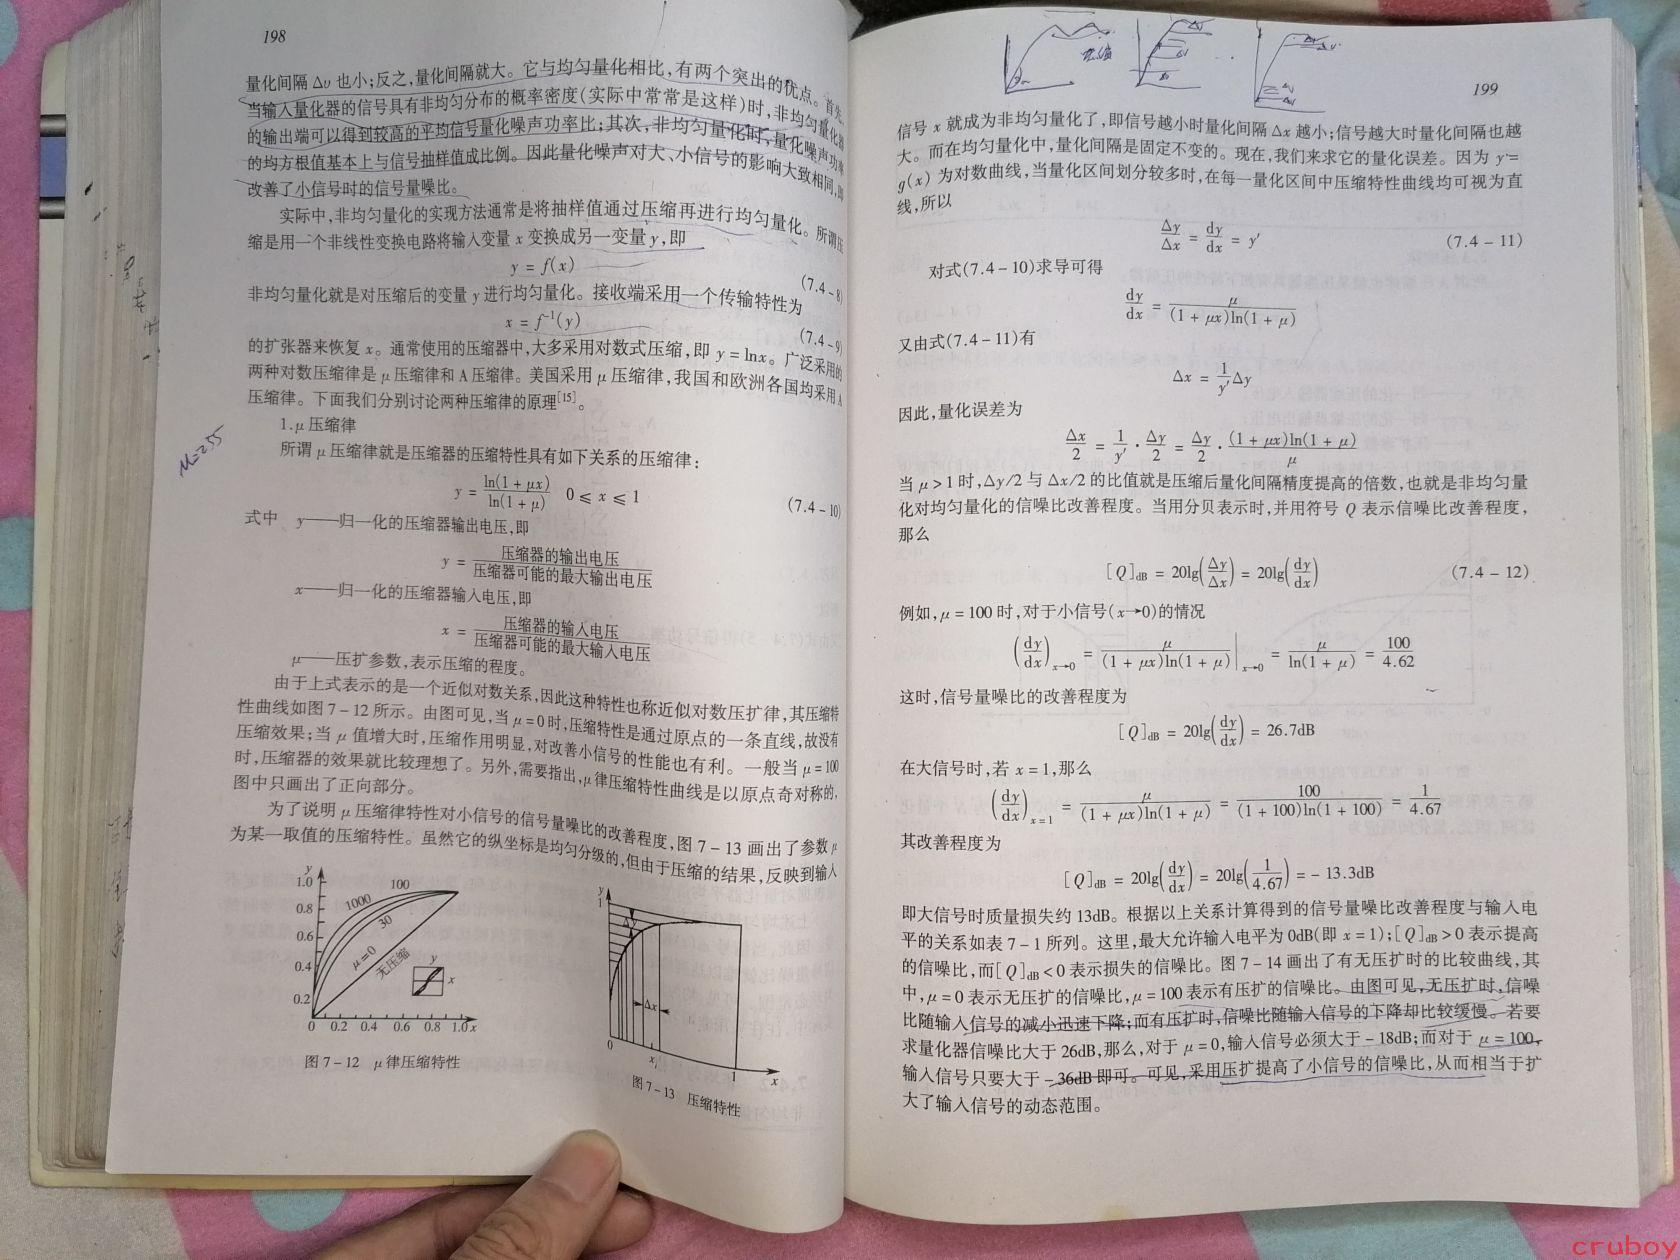 198
量化间隔 Δυ 也小;反之,量化间隔就大。它与均匀量化相比,有两个突出的优点。首先,
当输入量化器的信号具有非均匀分布的概率密度(实际中常常是这样)时,非均匀量化器
的输出端可以得到较高的平均信号量化噪声功率比;其次,非均匀量化时,量化噪声功率
的均方根值基本上与信号抽样值成比例。因此量化噪声对大、小信号的影响大致相同,即
改善了小信号时的信号量噪比。
实际中,非均匀量化的实现方法通常是将抽样值通过压缩再进行均匀量化。所谓压
缩是用一个非线性变换电路将输入变量 x 变换成另一变量 y,即
y = f(x) (7.4-8)
非均匀量化就是对压缩后的变量 y 进行均匀量化。接收端采用一个传输特性为
x = f⁻¹(y) (7.4-9)
的扩张器来恢复 x。通常使用的压缩器中,大多采用对数式压缩,即 y = lnx。广泛采用的
两种对数压缩律是 μ 压缩律和 A 压缩律。美国采用 μ 压缩律,我国和欧洲各国均采用 A
压缩律。下面我们分别讨论两种压缩律的原理[15]。
1. μ 压缩律
μ=255
所谓 μ 压缩律就是压缩器的压缩特性具有如下关系的压缩律:
y = ln(1 + μx) / ln(1 + μ) 0 ≤ x ≤ 1 (7.4-10)
式中 y——归一化的压缩器输出电压,即
y = 压缩器的输出电压 / 压缩器可能的最大输出电压
x——归一化的压缩器输入电压,即
x = 压缩器的输入电压 / 压缩器可能的最大输入电压
μ——压扩参数,表示压缩的程度。
由于上式表示的是一个近似对数关系,因此这种特性也称近似对数压扩律,其压缩特
性曲线如图 7-12 所示。由图可见,当 μ=0 时,压缩特性是通过原点的一条直线,故没有
压缩效果;当 μ 值增大时,压缩作用明显,对改善小信号的性能也有利。一般当 μ=100
时,压缩器的效果就比较理想了。另外,需要指出,μ 律压缩特性曲线是以原点奇对称的,
图中只画出了正向部分。
为了说明 μ 压缩律特性对小信号的信号量噪比的改善程度,图 7-13 画出了参数 μ
为某一取值的压缩特性。虽然它的纵坐标是均匀分级的,但由于压缩的结果,反映到输入
y
1.0
0.8
0.6
0.4
0.2
0 0.2 0.4 0.6 0.8 1.0 x
100
1000
30
μ=0
无压缩
y
x
图 7-12 μ 律压缩特性
y
1
Δy
Δx
0
xᵢ
1
x
图 7-13 压缩特性
压缩
Δv
Δv
Δv
Δv
199
信号 x 就成为非均匀量化了,即信号越小时量化间隔 Δx 越小;信号越大时量化间隔也越
大。而在均匀量化中,量化间隔是固定不变的。现在,我们来求它的量化误差。因为 y =
g(x) 为对数曲线,当量化区间划分较多时,在每一量化区间中压缩特性曲线均可视为直
线,所以
Δy/Δx = dy/dx = y′ (7.4-11)
对式(7.4-10)求导可得
dy/dx = μ / (1 + μx)ln(1 + μ)
又由式(7.4-11)有
Δx = 1/y′ Δy
因此,量化误差为
Δx/2 = 1/y′ · Δy/2 = Δy/2 · (1 + μx)ln(1 + μ) / μ
当 μ > 1 时,Δy/2 与 Δx/2 的比值就是压缩后量化间隔精度提高的倍数,也就是非均匀量
化对均匀量化的信噪比改善程度。当用分贝表示时,并用符号 Q 表示信噪比改善程度,
那么
[Q]dB = 20lg(Δy/Δx) = 20lg(dy/dx) (7.4-12)
例如,μ = 100 时,对于小信号(x→0)的情况
(dy/dx)x→0 = μ / (1 + μx)ln(1 + μ) |x→0 = μ / ln(1 + μ) = 100/4.62
这时,信号量噪比的改善程度为
[Q]dB = 20lg(dy/dx) = 26.7dB
在大信号时,若 x = 1,那么
(dy/dx)x=1 = μ / (1 + μx)ln(1 + μ) = 100 / (1 + 100)ln(1 + 100) = 1/4.67
其改善程度为
[Q]dB = 20lg(dy/dx) = 20lg(1/4.67) = - 13.3dB
即大信号时质量损失约 13dB。根据以上关系计算得到的信号量噪比改善程度与输入电
平的关系如表 7-1 所列。这里,最大允许输入电平为 0dB(即 x = 1);[Q]dB > 0 表示提高
的信噪比,而[Q]dB < 0 表示损失的信噪比。图 7-14 画出了有无压扩时的比较曲线,其
中,μ = 0 表示无压扩的信噪比,μ = 100 表示有压扩的信噪比。由图可见,无压扩时,信噪
比随输入信号的减小迅速下降;而有压扩时,信噪比随输入信号的下降却比较缓慢。若要
求量化器信噪比大于 26dB,那么,对于 μ = 0,输入信号必须大于 - 18dB;而对于 μ = 100,
输入信号只要大于 - 36dB 即可。可见,采用压扩提高了小信号的信噪比,从而相当于扩
大了输入信号的动态范围。
cruboy